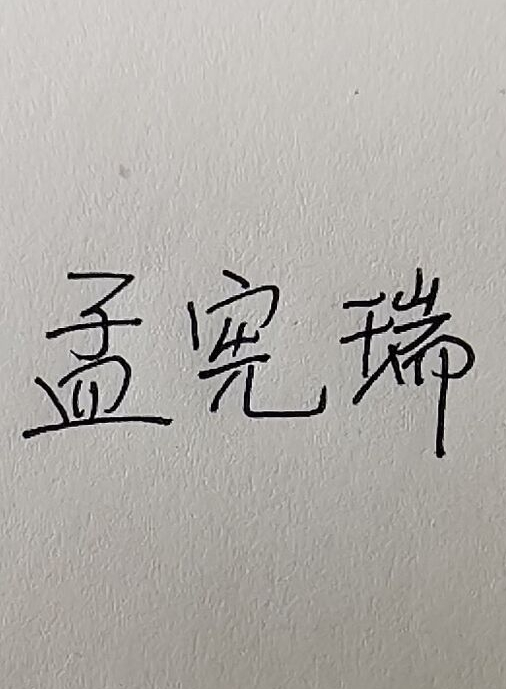 孟宪瑞